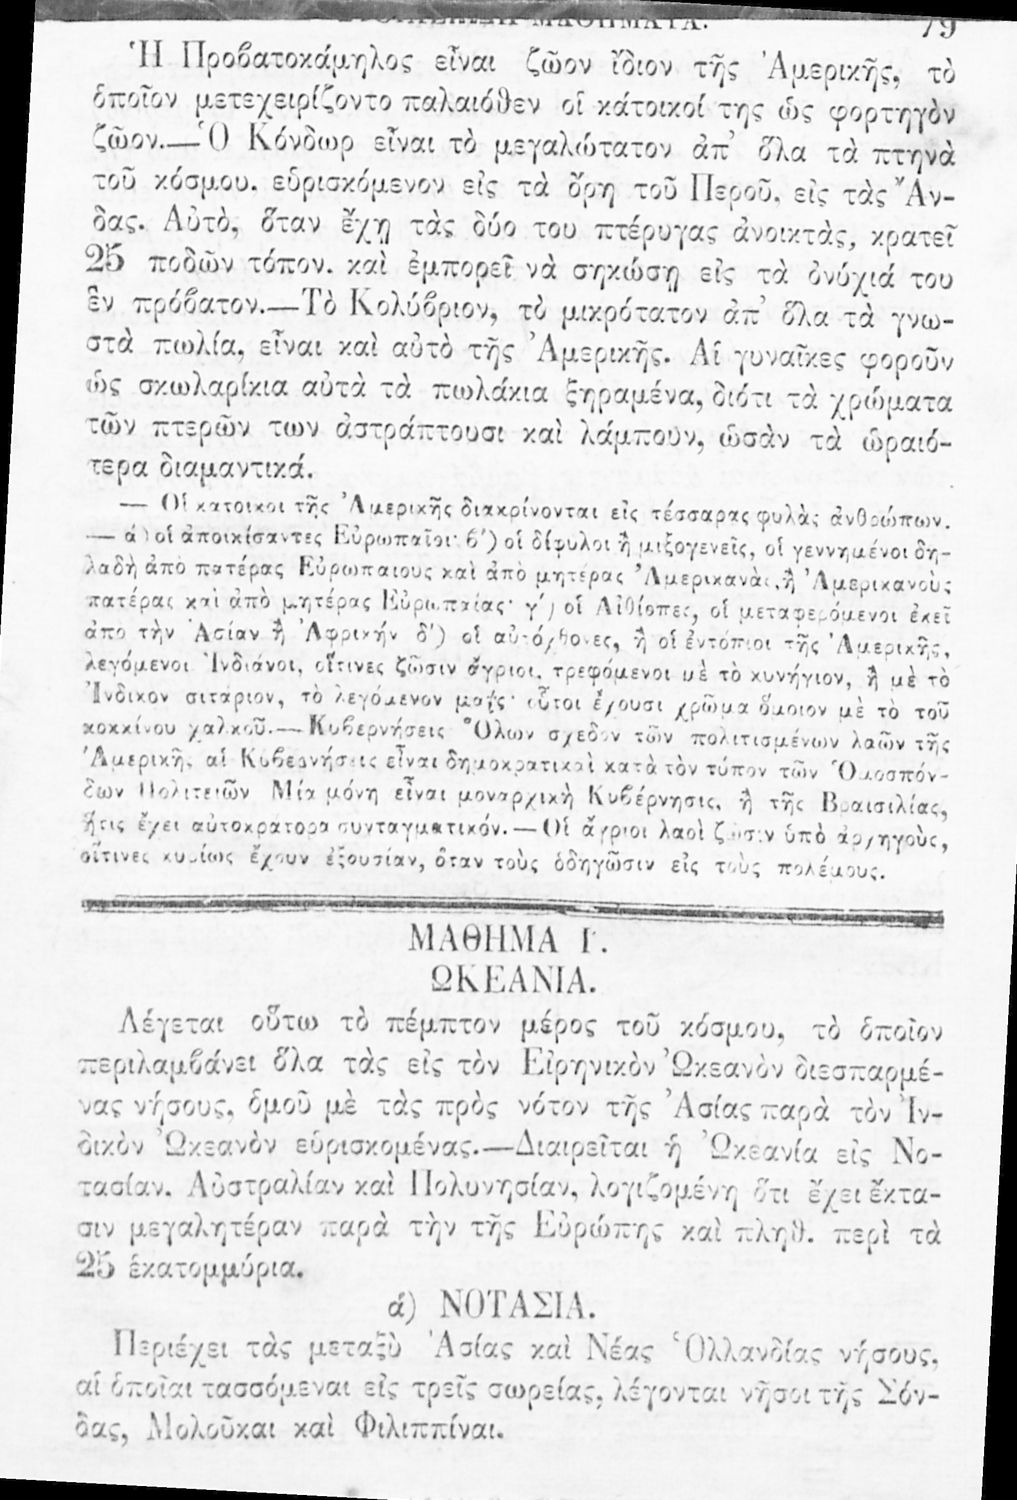 ΜΑΘΗΜΑΤΑ. 79
Ἡ Προβατοκάμηλος εἶναι ζῶον ἴδιον τῆς Ἀμερικῆς, τὸ
ὁποῖον μετεχειρίζοντο παλαιόθεν οἱ κάτοικοί της ὡς φορτηγὸν
ζῶον.—Ὁ Κόνδωρ εἶναι τὸ μεγαλώτατον ἀπ' ὅλα τὰ πτηνὰ
τοῦ κόσμου. εὑρισκόμενον εἰς τὰ ὄρη τοῦ Περοῦ, εἰς τὰς Ἄν-
δας. Αὐτὸ, ὅταν ἔχῃ τὰς δύο του πτέρυγας ἀνοικτὰς, κρατεῖ
25 ποδῶν τόπον. καὶ ἐμπορεῖ νὰ σηκώσῃ εἰς τὰ ὀνύχιά του
ἓν πρόβατον.—Τὸ Κολύβριον, τὸ μικρότατον ἀπ' ὅλα τὰ γνω-
στὰ πωλία, εἶναι καὶ αὐτὸ τῆς Ἀμερικῆς. Αἱ γυναῖκες φοροῦν
ὡς σκωλαρίκια αὐτὰ τὰ πωλάκια ξηραμένα, διότι τὰ χρώματα
τῶν πτερῶν των ἀστράπτουσι καὶ λάμπουν, ὡσὰν τὰ ὡραιό-
τερα διαμαντικά.
— Οἱ κατοικοι τῆς Ἀμερικῆς διακρίνονται εἰς τέσσαρας φυλὰς ἀνθρώπων.
— ά) οἱ ἀποικίσαντες Εὐρωπαῖοι· β') οἱ δίφυλοι ἢ μιξογενεῖς, οἱ γεννημένοι δη-
λαδὴ ἀπὸ πατέρας Εὐρωπαιους καὶ ἀπὸ μητέρας Ἀμερικανὰς, ἢ Ἀμερικανοὺς
πατέρας καὶ ἀπὸ μητέρας Εὐρωπαίας· γ') οἱ Αἰθίοπες, οἱ μεταφερόμενοι ἐκεῖ
ἀπο τὴν Ἀσίαν ἢ Ἀφρικήν δ') οἱ αὐτόχθονες, ἢ οἱ ἐντόπιοι τῆς Ἀμερικῆς,
λεγόμενοι Ἰνδιάνοι, οἵτινες ζῶσιν ἄγριοι, τρεφόμενοι μὲ τὸ κυνήγιον, ἢ μὲ τὸ
Ἰνδικον σιτάριον, τὸ λεγόμενον μαΐς· οὗτοι ἔχουσι χρῶμα ὅμοιον μὲ τὸ τοῦ
κοκκίνου χαλκοῦ.— Κυβερνήσεις Ὅλων σχεδον τῶν πολιτισμένων λαῶν τῆς
Ἀμερικῆς αἱ Κυβερνήσεις εἶναι δημοκρατικαὶ κατὰ τὸν τύπον τῶν Ὁμοσπόν-
δων Πολιτειῶν Μία μόνη εἶναι μοναρχικὴ Κυβέρνησις, ἡ τῆς Βρασιλίας,
ἥτις ἔχει αὐτοκράτορα συνταγματικόν.—Οἱ ἄγριοι λαοὶ ζῶσιν ὑπὸ ἀρχηγοὺς,
οἵτινες κυρίως ἔχουν ἐξουσίαν, ὅταν τοὺς ὁδηγῶσιν εἰς τοὺς πολέμους.
ΜΑΘΗΜΑ Γ.
ΩΚΕΑΝΙΑ.
Λέγεται οὕτω τὸ πέμπτον μέρος τοῦ κόσμου, τὸ ὁποῖον
περιλαμβάνει ὅλα τὰς εἰς τὸν Εἰρηνικὸν Ὠκεανὸν διεσπαρμέ-
νας νήσους, ὁμοῦ μὲ τὰς πρὸς νότον τῆς Ἀσίας παρὰ τὸν Ἰν-
δικὸν Ὠκεανὸν εὑρισκομένας.—Διαιρεῖται ἡ Ὠκεανία εἰς Νο-
τασίαν. Αὐστραλίαν καὶ Πολυνησίαν, λογιζομένη ὅτι ἔχει ἔκτα-
σιν μεγαλητέραν παρὰ τὴν τῆς Εὐρώπης καὶ πληθ. περὶ τὰ
25 ἑκατομμύρια.
ά) ΝΟΤΑΣΙΑ.
Περιέχει τὰς μεταξὺ Ἀσίας καὶ Νέας Ὁλλανδίας νήσους,
αἱ ὁποῖαι τασσόμεναι εἰς τρεῖς σωρείας, λέγονται νῆσοι τῆς Σόν-
δας, Μολοῦκαι καὶ Φιλιππίναι.